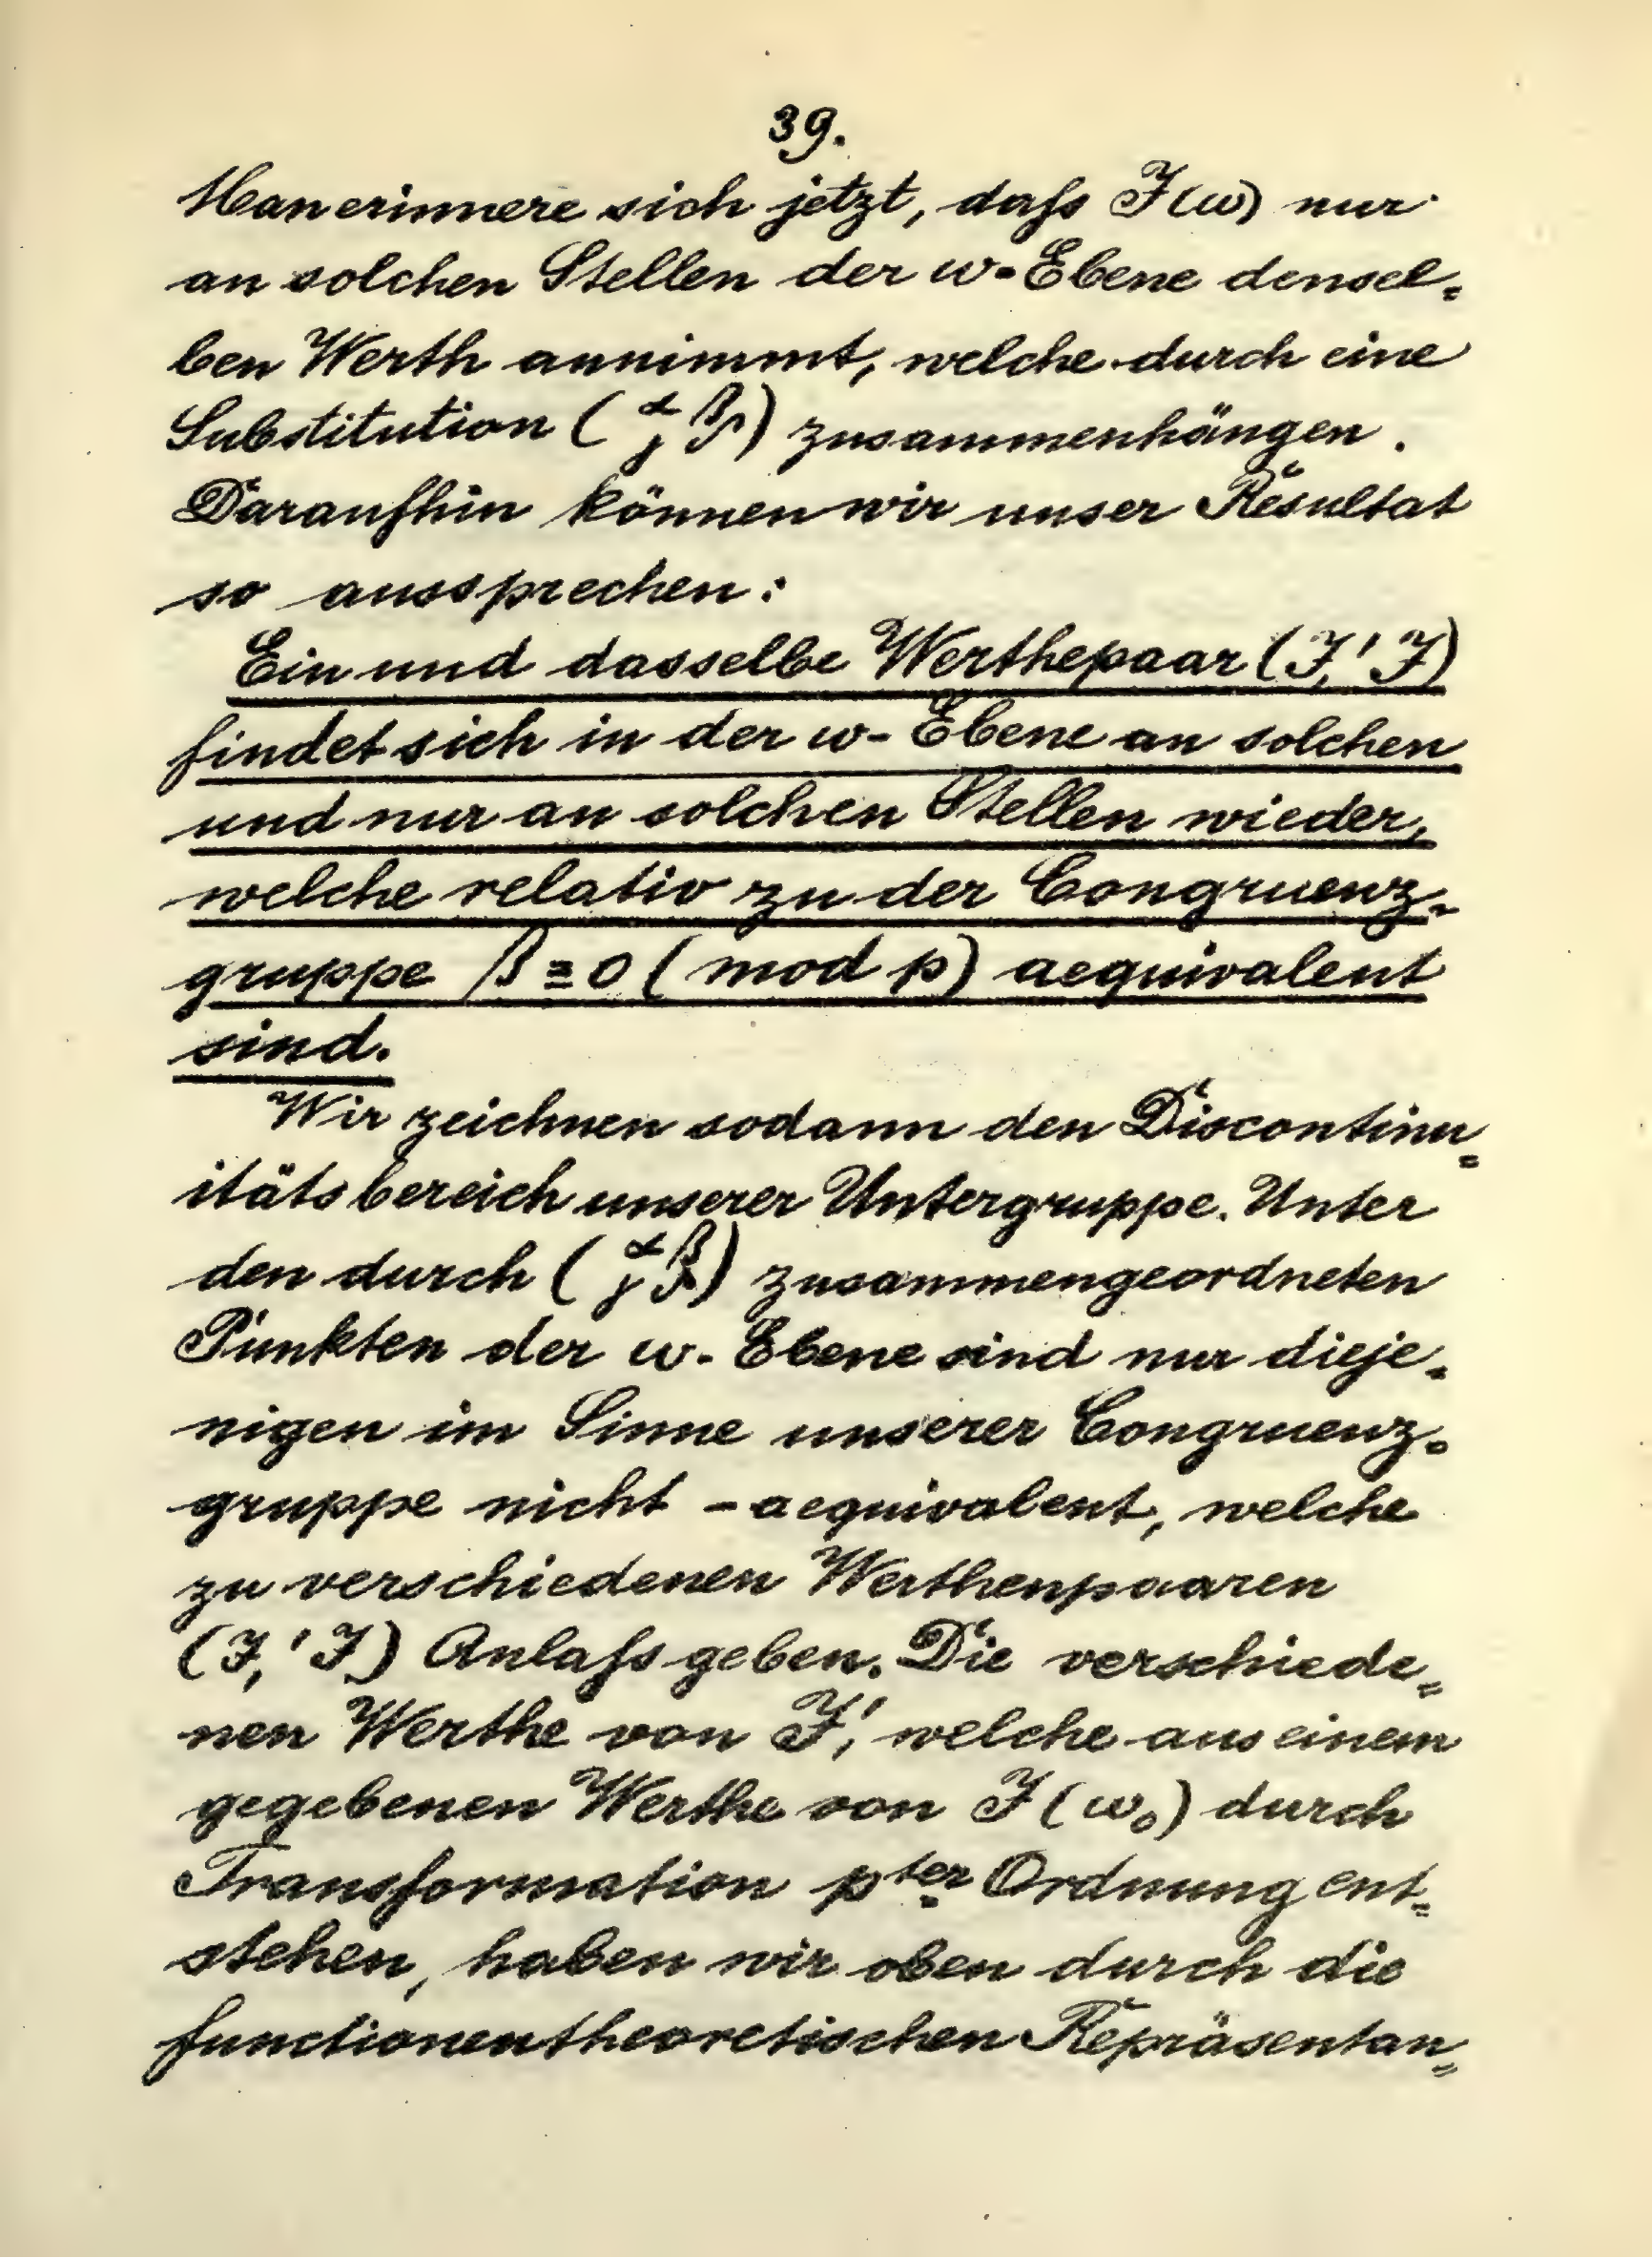 39.
Man erinnere sich jetzt, daſs J(ω) nur
an solchen Stellen der ω-Ebene densel=
ben Werth annimmt, welche durch eine
Substitution (α β γ δ) zusammenhängen.
Daraufhin können wir unser Resultat
so aussprechen:
Ein und dasselbe Werthepaar (J,' J)
findet sich in der ω-Ebene an solchen
und nur an solchen Stellen wieder,
welche relativ zu der Congruenz=
gruppe β ≡ 0 (mod p) aequivalent
sind.
Wir zeichnen sodann den Discontinu=
itätsbereich unserer Untergruppe. Unter
den durch (α β γ δ) zusammengeordneten
Punkten der ω-Ebene sind nur dieje=
nigen im Sinne unserer Congruenz=
gruppe nicht-aequivalent, welche
zu verschiedenen Werthenpaaren
(J,' J) Anlaſs geben. Die verschiede=
nen Werthe von J,' welche aus einem
gegebenen Werthe von J(ω₀) durch
Transformation pter Ordnung ent=
stehen, haben wir oben durch die
functionentheoretischen Repräsentan=